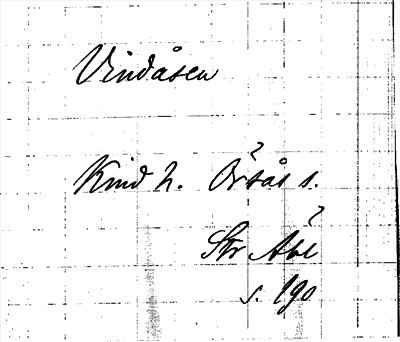 Vindåsen
?
Kind h. Örsås s.
?
Str Abl
s. 190